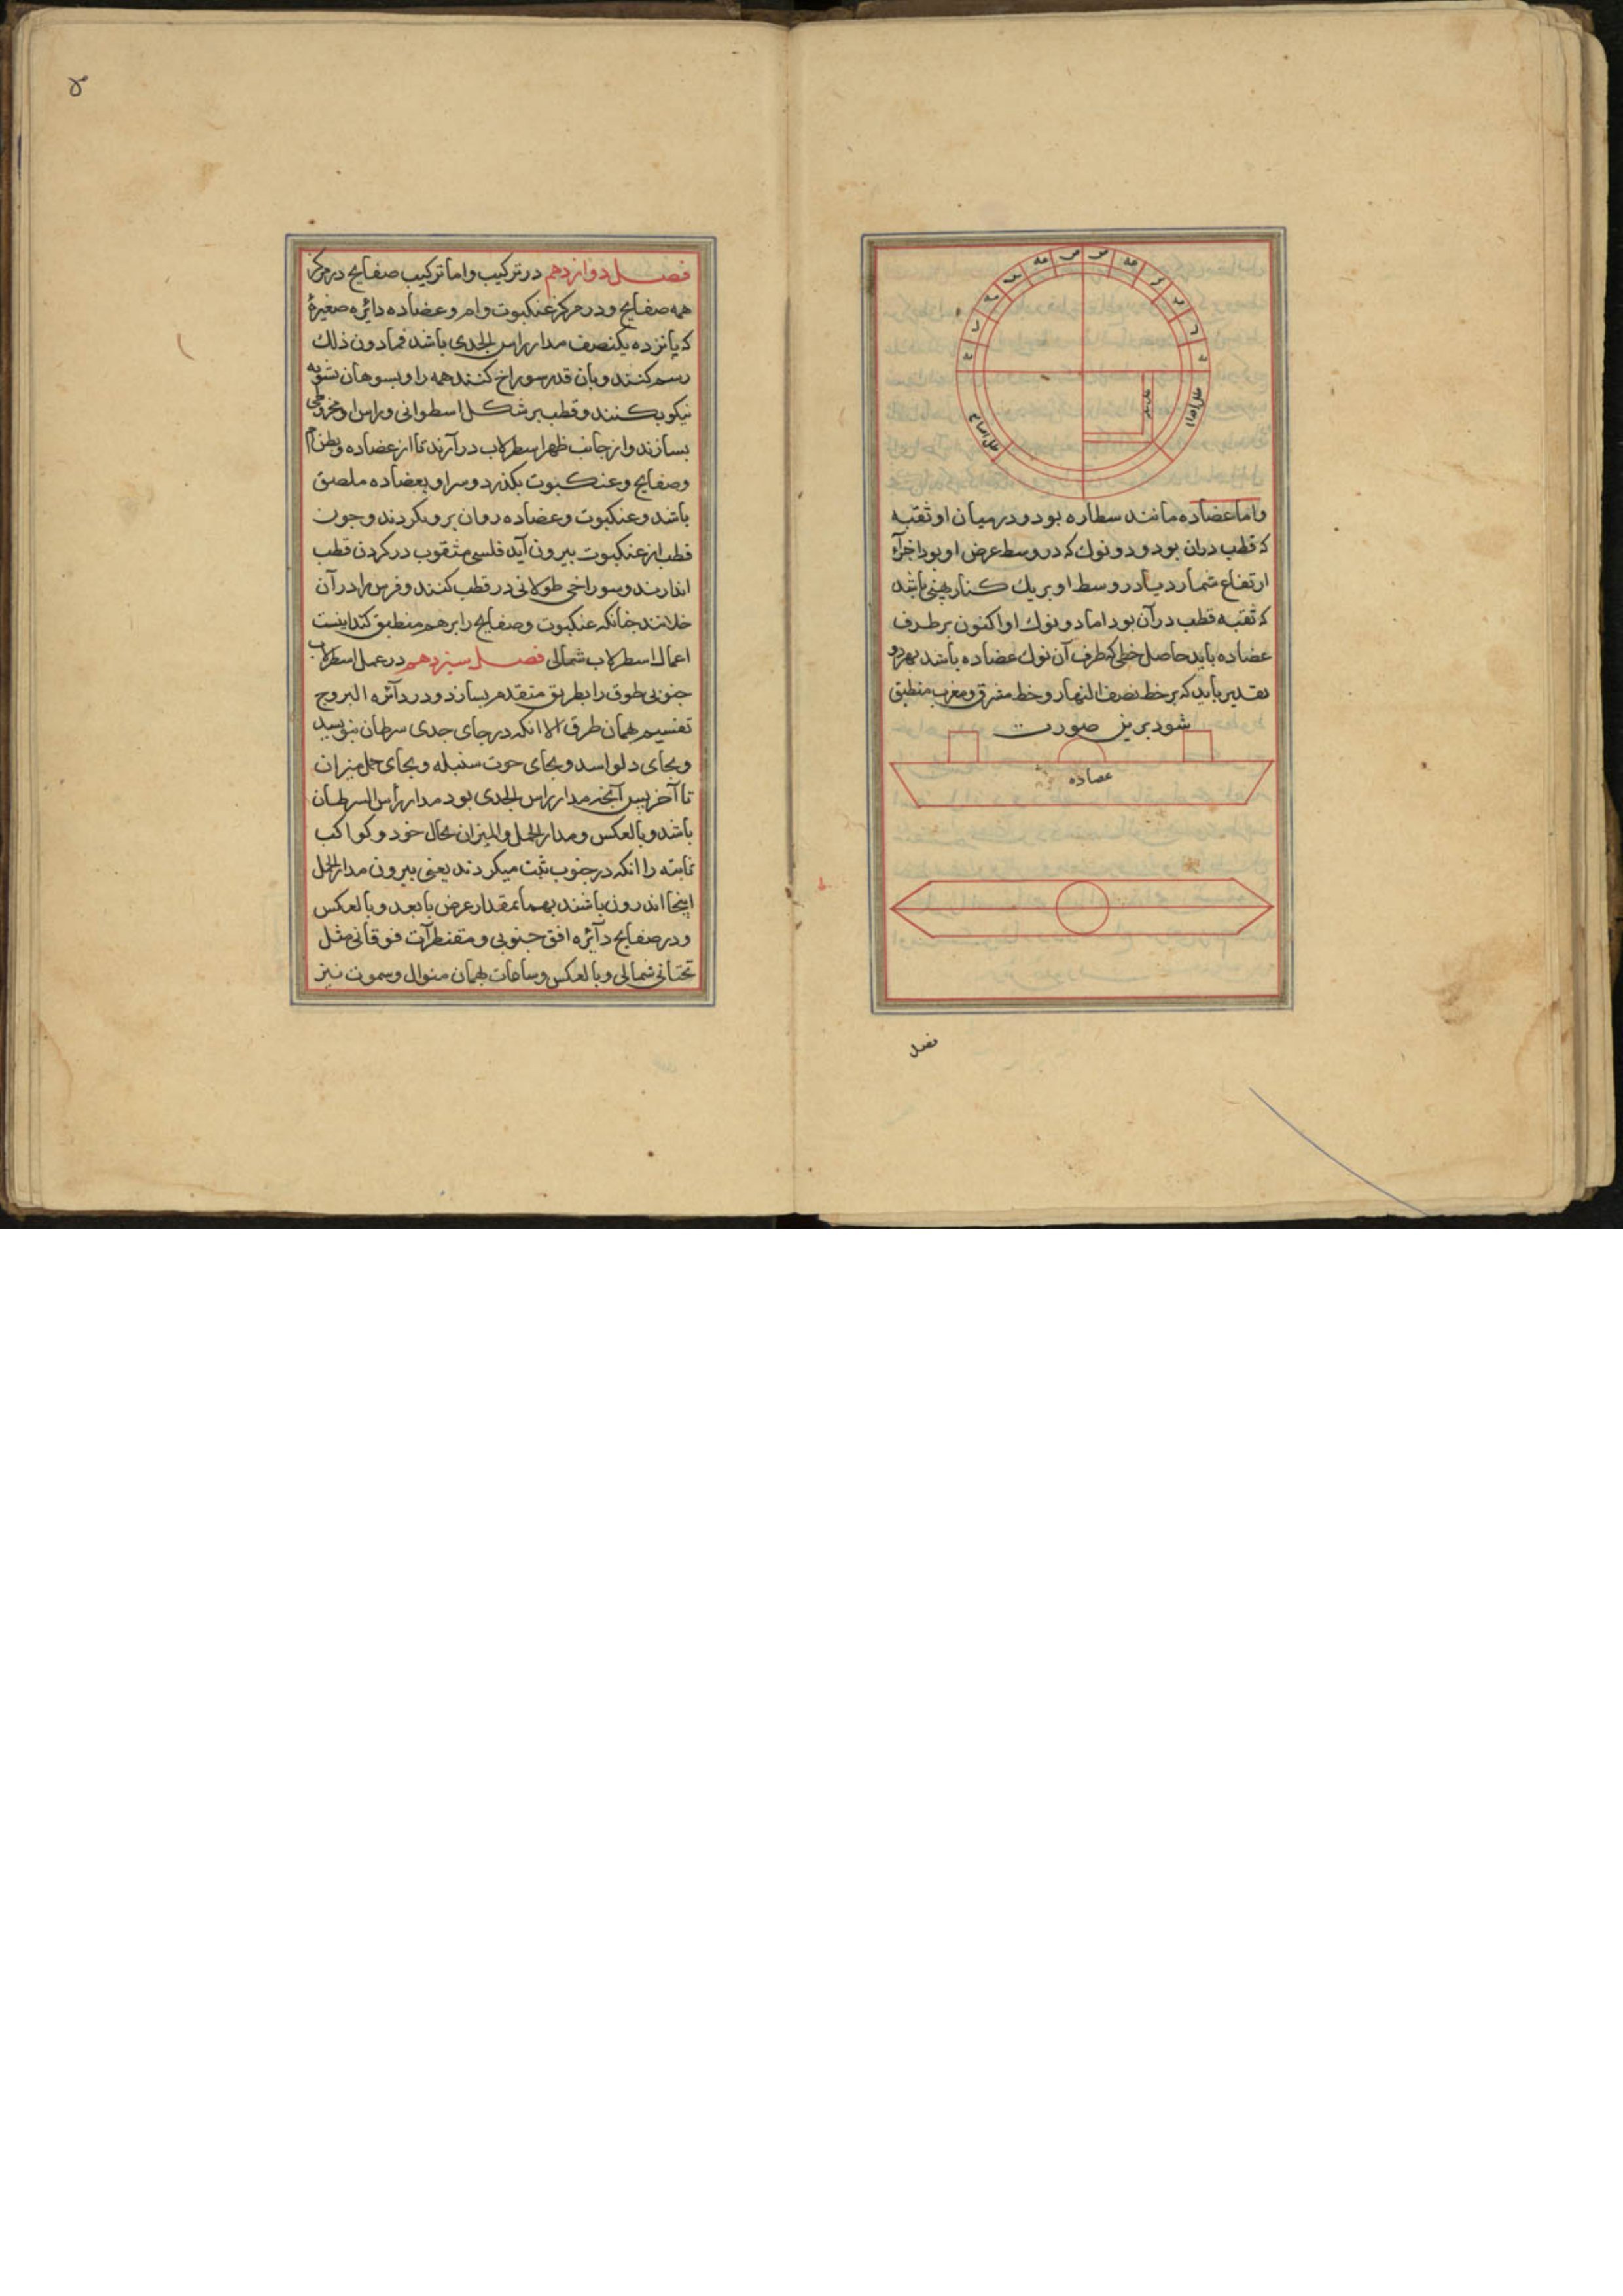 واما عضاده مانند سطاره بود و در میان او ثقبه
که قطب دران بود و دو نوك که در وسط عرض او بود اجزآء
ارتفاع شمارد یا در وسط او بر یك کنار پهنی باشد
که ثقبه قطب در آن بود اما دو نوك او اکنون بر طرف
عضاده باید حاصل خطی که طرف آن نوك عضاده باشد بهر دو
تقدیر باید که بر خط نصف النهار و خط مشرق و مغرب منطبق
شود برین صورت
عضاده
فصل
فصل دوازدهم در ترکیب واما ترکیب صفایح در مرکز
همه صفایح و در مرکز عنکبوت وام و عضاده دایٔره صغیرهٔ
که پانزده یکنصف مدار راس الجدی باشد فمادون ذلك
رسم کنند و بان قدر سوراخ کنند همه را و بسوهان تسویه
نیکو بکنند و قطب بر شکل اسطوانی و راس او مخروطی
بسازند و از جانب ظهر اسطرلاب در آرند تا از عضاده و بطن ام
وصفایح وعنکبوت بکذرد و سر او بعضاده ملصق
باشد و عنکبوت و عضاده روان برو بکردند و جون
قطب از عنکبوت بیرون آید فلسی مثقوب در کردن قطب
اندازند و سوراخی طولانی در قطب کنند و فرس را در آن
خلانند جنانکه عنکبوت و صفایح را بر هم منطبق کند اینست
اعمال اسطرلاب شمالی فصل سیزدهم در عمل اسطرلاب
جنوبی طوق را بطریق متقدم بسازند و در دآئره البروج
تقسیم همان طرق الا انکه در جای جدی سرطان بنویسند
و بجای دلو اسد و بجای حوت سنبله و بجای حمل میزان
تا آخر پس آنجه مدار راس الجدی بود مدار رأس السرطان
باشد و بالعکس و مدار الحمل و المیزان بحال خود و کواکب
ثابته را انکه در جنوب ثبت میکردند یعنی بیرون مدار الحمل
اینجا اندرون باشند بهمان مقدار عرض یا بعد و بالعکس
و در صفایح دآئره افق جنوبی و مقنطرآت فوقانی مثل
تحتانی شمالی و بالعکس و ساعات بهمان منوال و سموت نیز